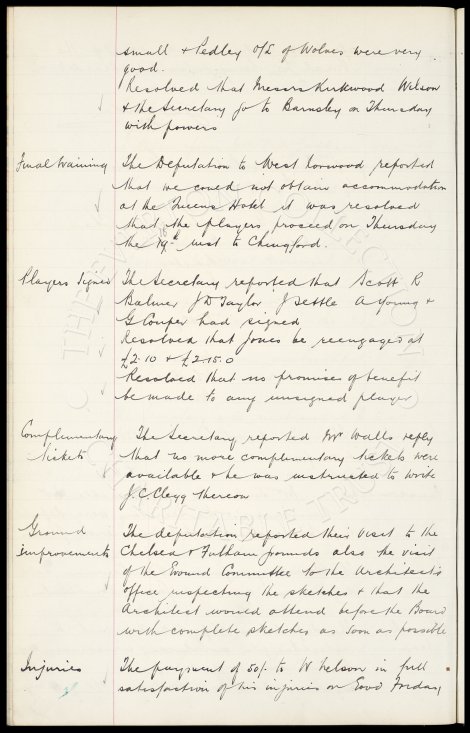 small & Pedley O/L of Wolves were very
good.
Resolved that Messrs Kirkwood Wilson
& the Secretary go to Barnsley on Thursday
with powers
Final training The Deputation to West Norwood reported
that we could not obtain accommodation
at the Queens Hotel it was resolved
that the players proceed on Thursday
the 19th inst to Chingford.
Players Signed The Secretary reported that Scott R
Balmer J D Taylor J Settle A Young &
G Couper had signed
Resolved that Jones be reengaged at
£2.10 & £2.15.0
Resolved that no promises of benefit
be made to any unsigned player
Complementary The Secretary reported Mr Walls reply
tickets that no more complementary tickets were
available & he was instructed to write
J.C. Clegg thereon
Ground The deputation reported their visit to the
improvements Chelsea & Fulham grounds also the visit
of the Ground Committee to the Architects
office inspecting the sketches & that the
Architect would attend before the Board
with complete sketches as soon as possible
Injuries The payment of 50/- to W Nelson in full
satisfaction of his injuries on Good Friday